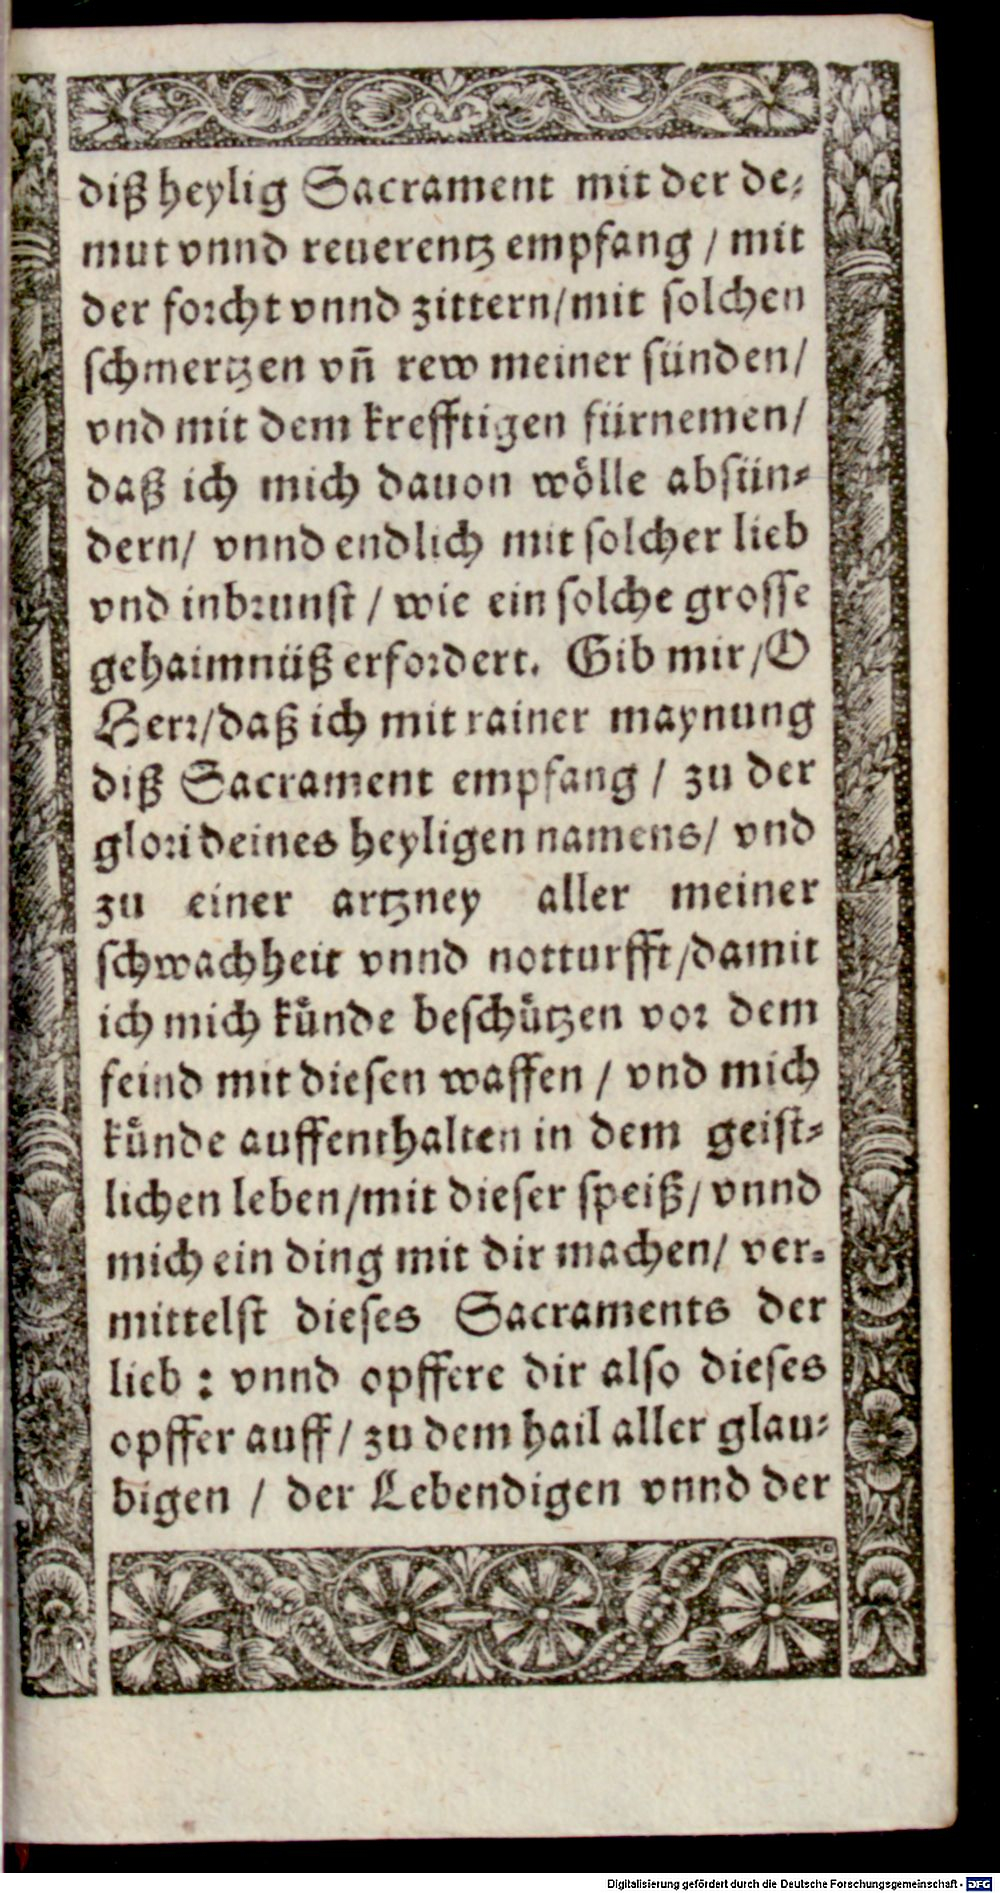 diß heylig Sacrament mit der de⸗
mut vnnd reuerentz empfang / mit
der forcht vnnd zittern/mit solchen
schmertzen vñ rew meiner sünden/
vnd mit dem krefftigen fürnemen/
daß ich mich dauon wölle absün⸗
dern/ vnnd endlich mit solcher lieb
vnd inbrunst / wie ein solche grosse
gehaimnüß erfordert. Gib mir /O
Herr/daß ich mit rainer maynung
diß Sacrament empfang / zu der
glori deines heyligen namens/ vnd
zu einer artzney aller meiner
schwachheit vnnd notturfft/damit
ich mich kůnde beschůtzen vor dem
feind mit diesen waffen / vnd mich
kůnde auffenthalten in dem geist⸗
lichen leben/mit dieser speiß/ vnnd
mich ein ding mit dir machen/ ver⸗
mittelst dieses Sacraments der
lieb : vnnd opffere dir also dieses
opffer auff/ zu dem hail aller glau⸗
bigen / der Lebendigen vnnd der
Digitalisierung gefördert durch die Deutsche Forschungsgemeinschaft - DFG